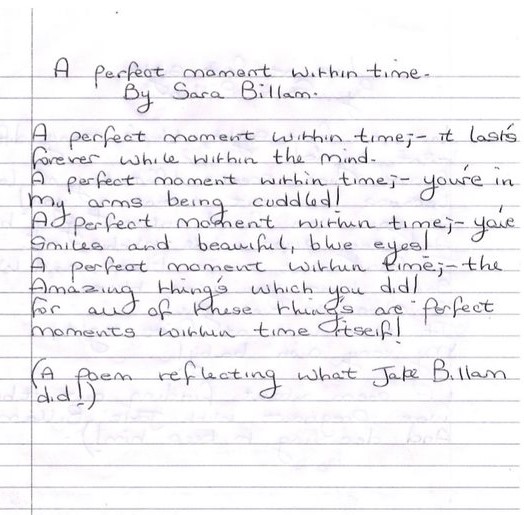 A perfect moment within time.
By Sara Billam.
A perfect moment within time;- it lasts
forever while within the mind.
A perfect moment within time;- you're in
my arms being cuddled!
A perfect moment within time;- your
smiles and beautiful, blue eyes!
A perfect moment within time;- the
Amazing thing's which you did!
for all of these thing's are perfect
moments within time itself!
(A poem reflecting what Jake Billam
did!)